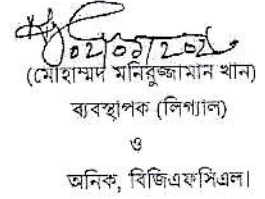 02/02/202
(মোহাম্মদ মনিরুজ্জামান খান)
ব্যবস্থাপক (লিগ্যাল)
ও
অনিক, বিজিএফসিএল।